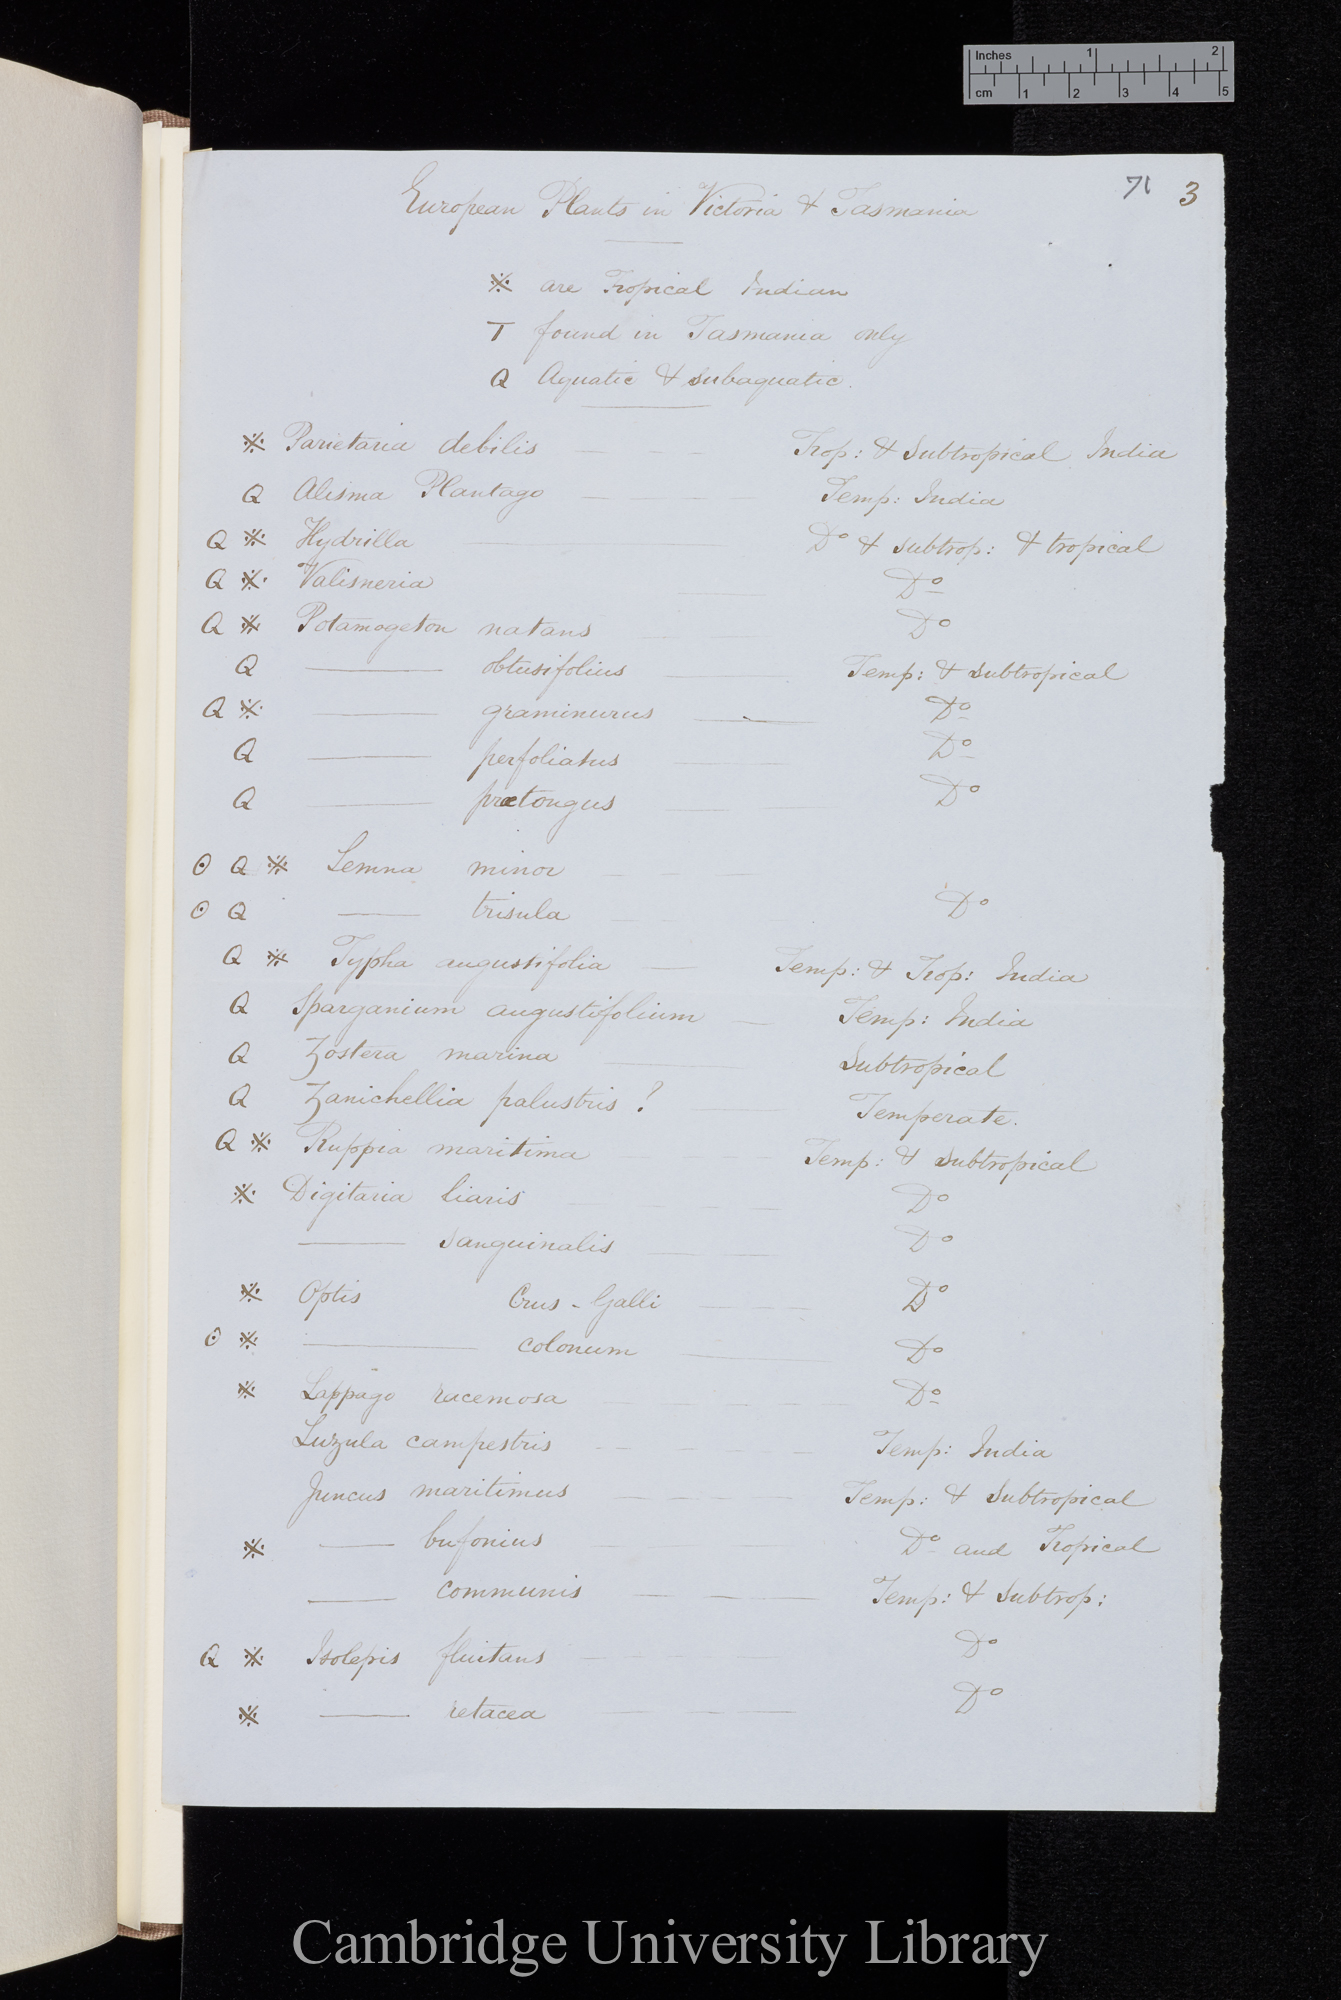 Inches 1 2
cm 1 2 3 4 5
71 3
European Plants in Victoria & Tasmania
※ are Tropical Indian
T found in Tasmania only
Q Aquatic & subaquatic.
※ Parietaria debilis — - - Trop: & Subtropical India
Q Alisma Plantago — — — — Temp: India
Q ※ Hydrilla — Do & subtrop: & tropical
Q ※ Valisneria — Do
Q ※ Potamogeton natans — — Do
Q — obtusifolius — Temp: & Subtropical
Q ※ — graminurus — Do
Q — perfoliatus — Do
Q — prætongus — — Do
ʘ Q ※ Lemna minor — — — —
ʘ Q — trisula — Do
Q ※ Typha angustifolia — Temp: & Trop: India
Q Sparganium augustifolium — Temp: India
Q Zostera marina — Subtropical
Q Zanichellia palustris ? — Temperate.
Q ※ Ruppia maritima — — — — Temp: & Subtropical
※ Digitaria liaris — — — — Do
— sanguinalis — — — Do
※ Optis Crus-Galli — — — Do
ʘ ※ — colonum — Do
※ Lappago racemosa — — — — — — Do
Luzula campestris — — — — — Temp: India
Juncus maritimus — — — — Temp: & Subtropical
※ — bufonius — — — Do and Tropical
— communis — — — Temp: & Subtrop:
Q ※ Isolepis fluitans — — — — Do
※ — retacea — — — Do
Cambridge University Library